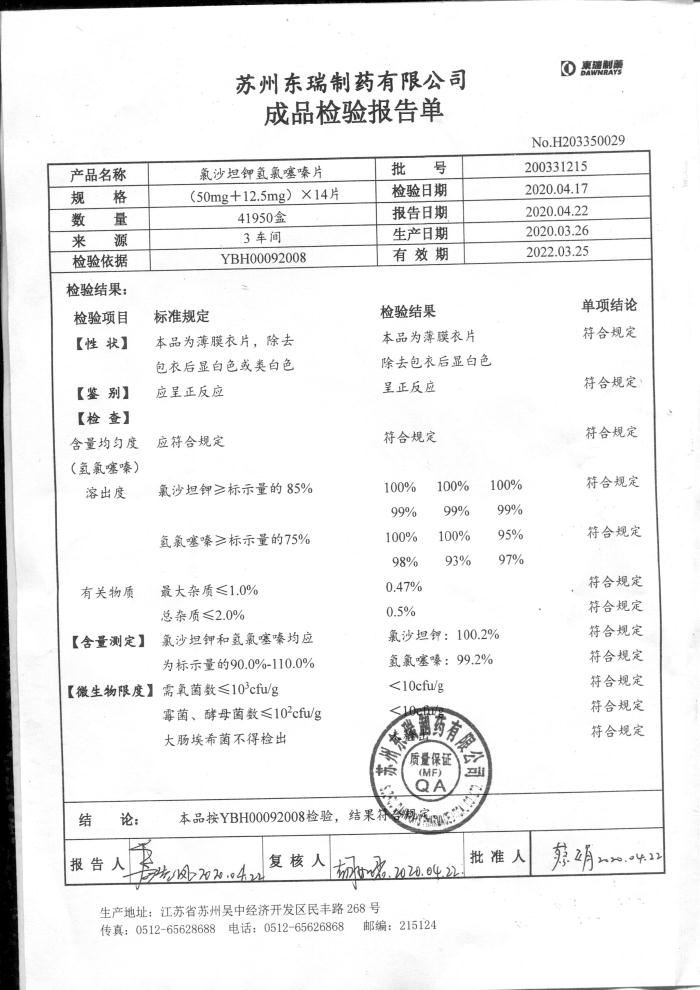 東瑞制藥
DAWNRAYS
苏州东瑞制药有限公司
成品检验报告单
No.H203350029
产品名称 氯沙坦钾氢氯噻嗪片 批 号 200331215
规 格 (50mg＋12.5mg)×14片 检验日期 2020.04.17
数 量 41950盒 报告日期 2020.04.22
来 源 3 车间 生产日期 2020.03.26
检验依据 YBH00092008 有 效 期 2022.03.25
检验结果：
检验项目 标准规定 检验结果 单项结论
【性 状】 本品为薄膜衣片，除去 本品为薄膜衣片 符合规定
包衣后显白色或类白色 除去包衣后显白色
【鉴 别】 应呈正反应 呈正反应 符合规定
【检 查】
含量均匀度 应符合规定 符合规定 符合规定
(氢氯噻嗪)
溶出度 氯沙坦钾≥标示量的 85% 100% 100% 100% 符合规定
99% 99% 99%
氢氯噻嗪≥标示量的75% 100% 100% 95% 符合规定
98% 93% 97%
有关物质 最大杂质≤1.0% 0.47% 符合规定
总杂质≤2.0% 0.5% 符合规定
【含量测定】 氯沙坦钾和氢氯噻嗪均应 氯沙坦钾：100.2% 符合规定
为标示量的90.0%-110.0% 氢氯噻嗪：99.2% 符合规定
【微生物限度】 需氧菌数≤10³cfu/g ＜10cfu/g 符合规定
霉菌、酵母菌数≤10²cfu/g ＜10cfu/g 符合规定
大肠埃希菌不得检出 出 符合规定
苏州东瑞制药有限公司
质量保证
(MF)
QA
结 论： 本品按YBH00092008检验，结果符合规定
报 告 人 2020.04.22 复 核 人 2020.04.22. 批 准 人 蔡 2020.04.22
生产地址：江苏省苏州吴中经济开发区民丰路 268 号
传真：0512-65628688 电话：0512-65626868 邮编：215124